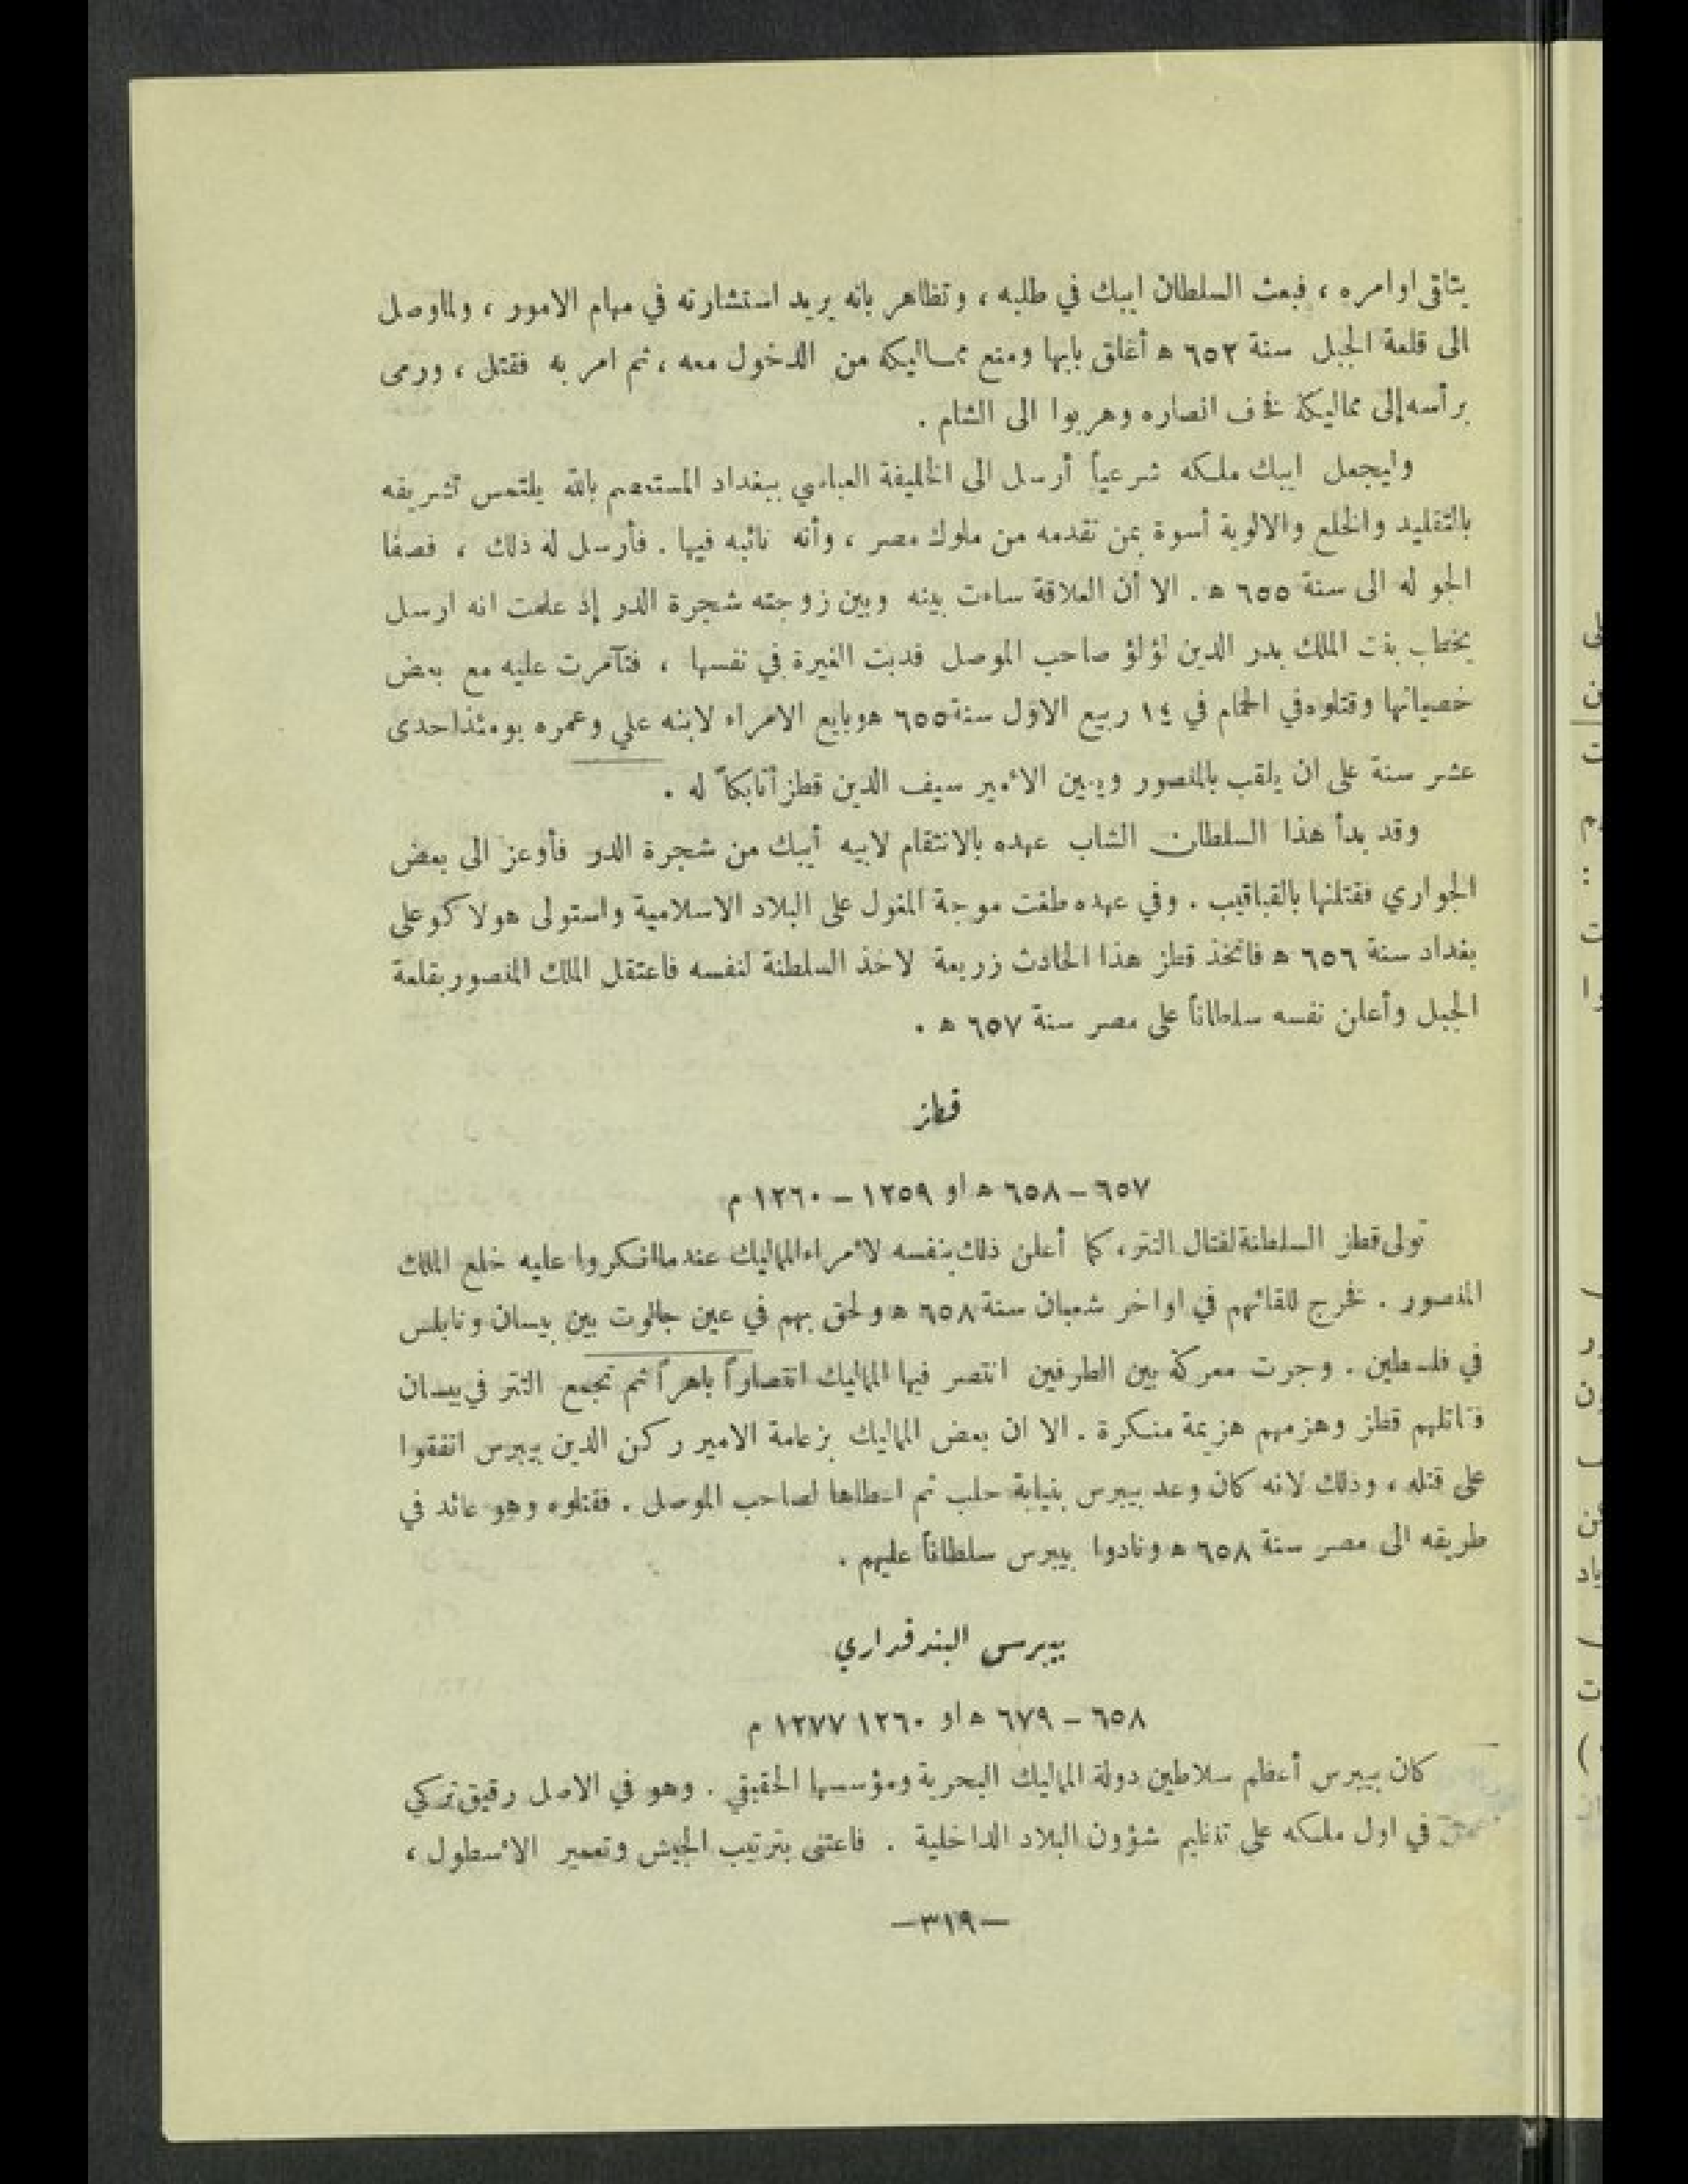 يتلقى اوامره ، فبعث السلطان ايبك في طلبه ، وتظاهر بانه يريد استشارته في مهام الامور ، ولما وصل
الى قلعة الجبل سنة ٦٥٢ ه أغلق بابها ومنع مماليكه من الدخول معه ، ثم امر به فقتل ، ورمى
برأسه إلى مماليكه فخاف انصاره وهربوا الى الشام .
وليجعل ايبك ملكه شرعياً أرسل الى الخليفة العباسي ببغداد المستعصم بالله يلتمس تشريفه
بالتقليد والخلع والالوية أسوة بمن تقدمه من ملوك مصر ، وأنه نائبه فيها . فأرسل له ذلك ، فصفا
الجو له الى سنة ٦٥٥ ه . الا أن العلاقة ساءت بينه وبين زوجته شجرة الدر إذ علمت انه ارسل
يخطب بنت الملك بدر الدين لؤلؤ صاحب الموصل فدبت الغيرة في نفسها ، فتآمرت عليه مع بعض
خصيانها وقتلوه في الحمام في ١٤ ربيع الاول سنة ٦٥٥ ه وبايع الامراء لابنه علي وعمره يومئذ احدى
عشر سنة على ان يلقب بالمنصور ويعين الأمير سيف الدين قطز أتابكاً له .
وقد بدأ هذا السلطان الشاب عهده بالانتقام لابيه أيبك من شجرة الدر فأوعز الى بعض
الجواري فقتلنها بالقباقيب . وفي عهده طغت موجة المغول على البلاد الاسلامية واستولى هولاكو على
بغداد سنة ٦٥٦ ه فاتخذ قطز هذا الحادث زريعة لاخذ السلطنة لنفسه فاعتقل الملك المنصور بقلعة
الجبل وأعلن نفسه سلطاناً على مصر سنة ٦٥٧ ه .
قطز
٦٥٧ – ٦٥٨ ه او ١٢٥٩ – ١٢٦٠ م
تولى قطز السلطنة لقتال التتر ، كما أعلن ذلك بنفسه لأمراء المماليك عندما انكروا عليه خلع الملك
المنصور . فخرج للقائهم في اواخر شعبان سنة ٦٥٨ ه ولحق بهم في عين جالوت بين بيسان ونابلس
في فلسطين . وجرت معركة بين الطرفين انتصر فيها المماليك انتصاراً باهراً ثم تجمع التتر في بيسان
فقاتلهم قطز وهزمهم هزيمة منكرة . الا ان بعض المماليك بزعامة الامير ركن الدين بيبرس اتفقوا
على قتله ، وذلك لانه كان وعد بيبرس بنيابة حلب ثم اعطاها لصاحب الموصل . فقتلوه وهو عائد في
طريقه الى مصر سنة ٦٥٨ ه ونادوا بيبرس سلطاناً عليهم .
بيبرس البندقداري
٦٥٨ – ٦٧٩ ه او ١٢٦٠ ١٢٧٧ م
كان بيبرس أعظم سلاطين دولة المماليك البحرية ومؤسسها الحقيقي . وهو في الاصل رقيق تركي
في اول ملكه على تنظيم شؤون البلاد الداخلية . فاعتنى بترتيب الجيش وتعمير الأسطول ،
—٣١٩—